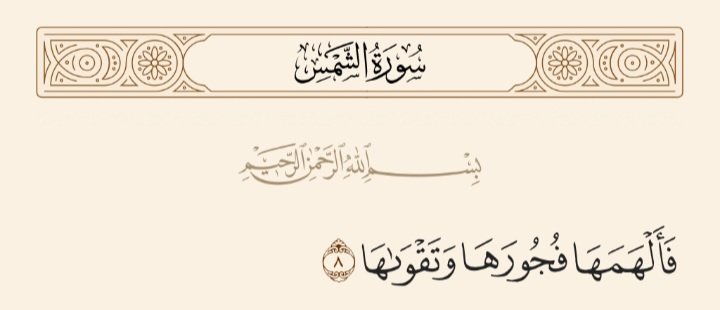 سُورَةُ الشَّمْسِ
بِسْمِ ٱللَّهِ ٱلرَّحْمَٰنِ ٱلرَّحِيمِ
فَأَلْهَمَهَا فُجُورَهَا وَتَقْوَىٰهَا ٨